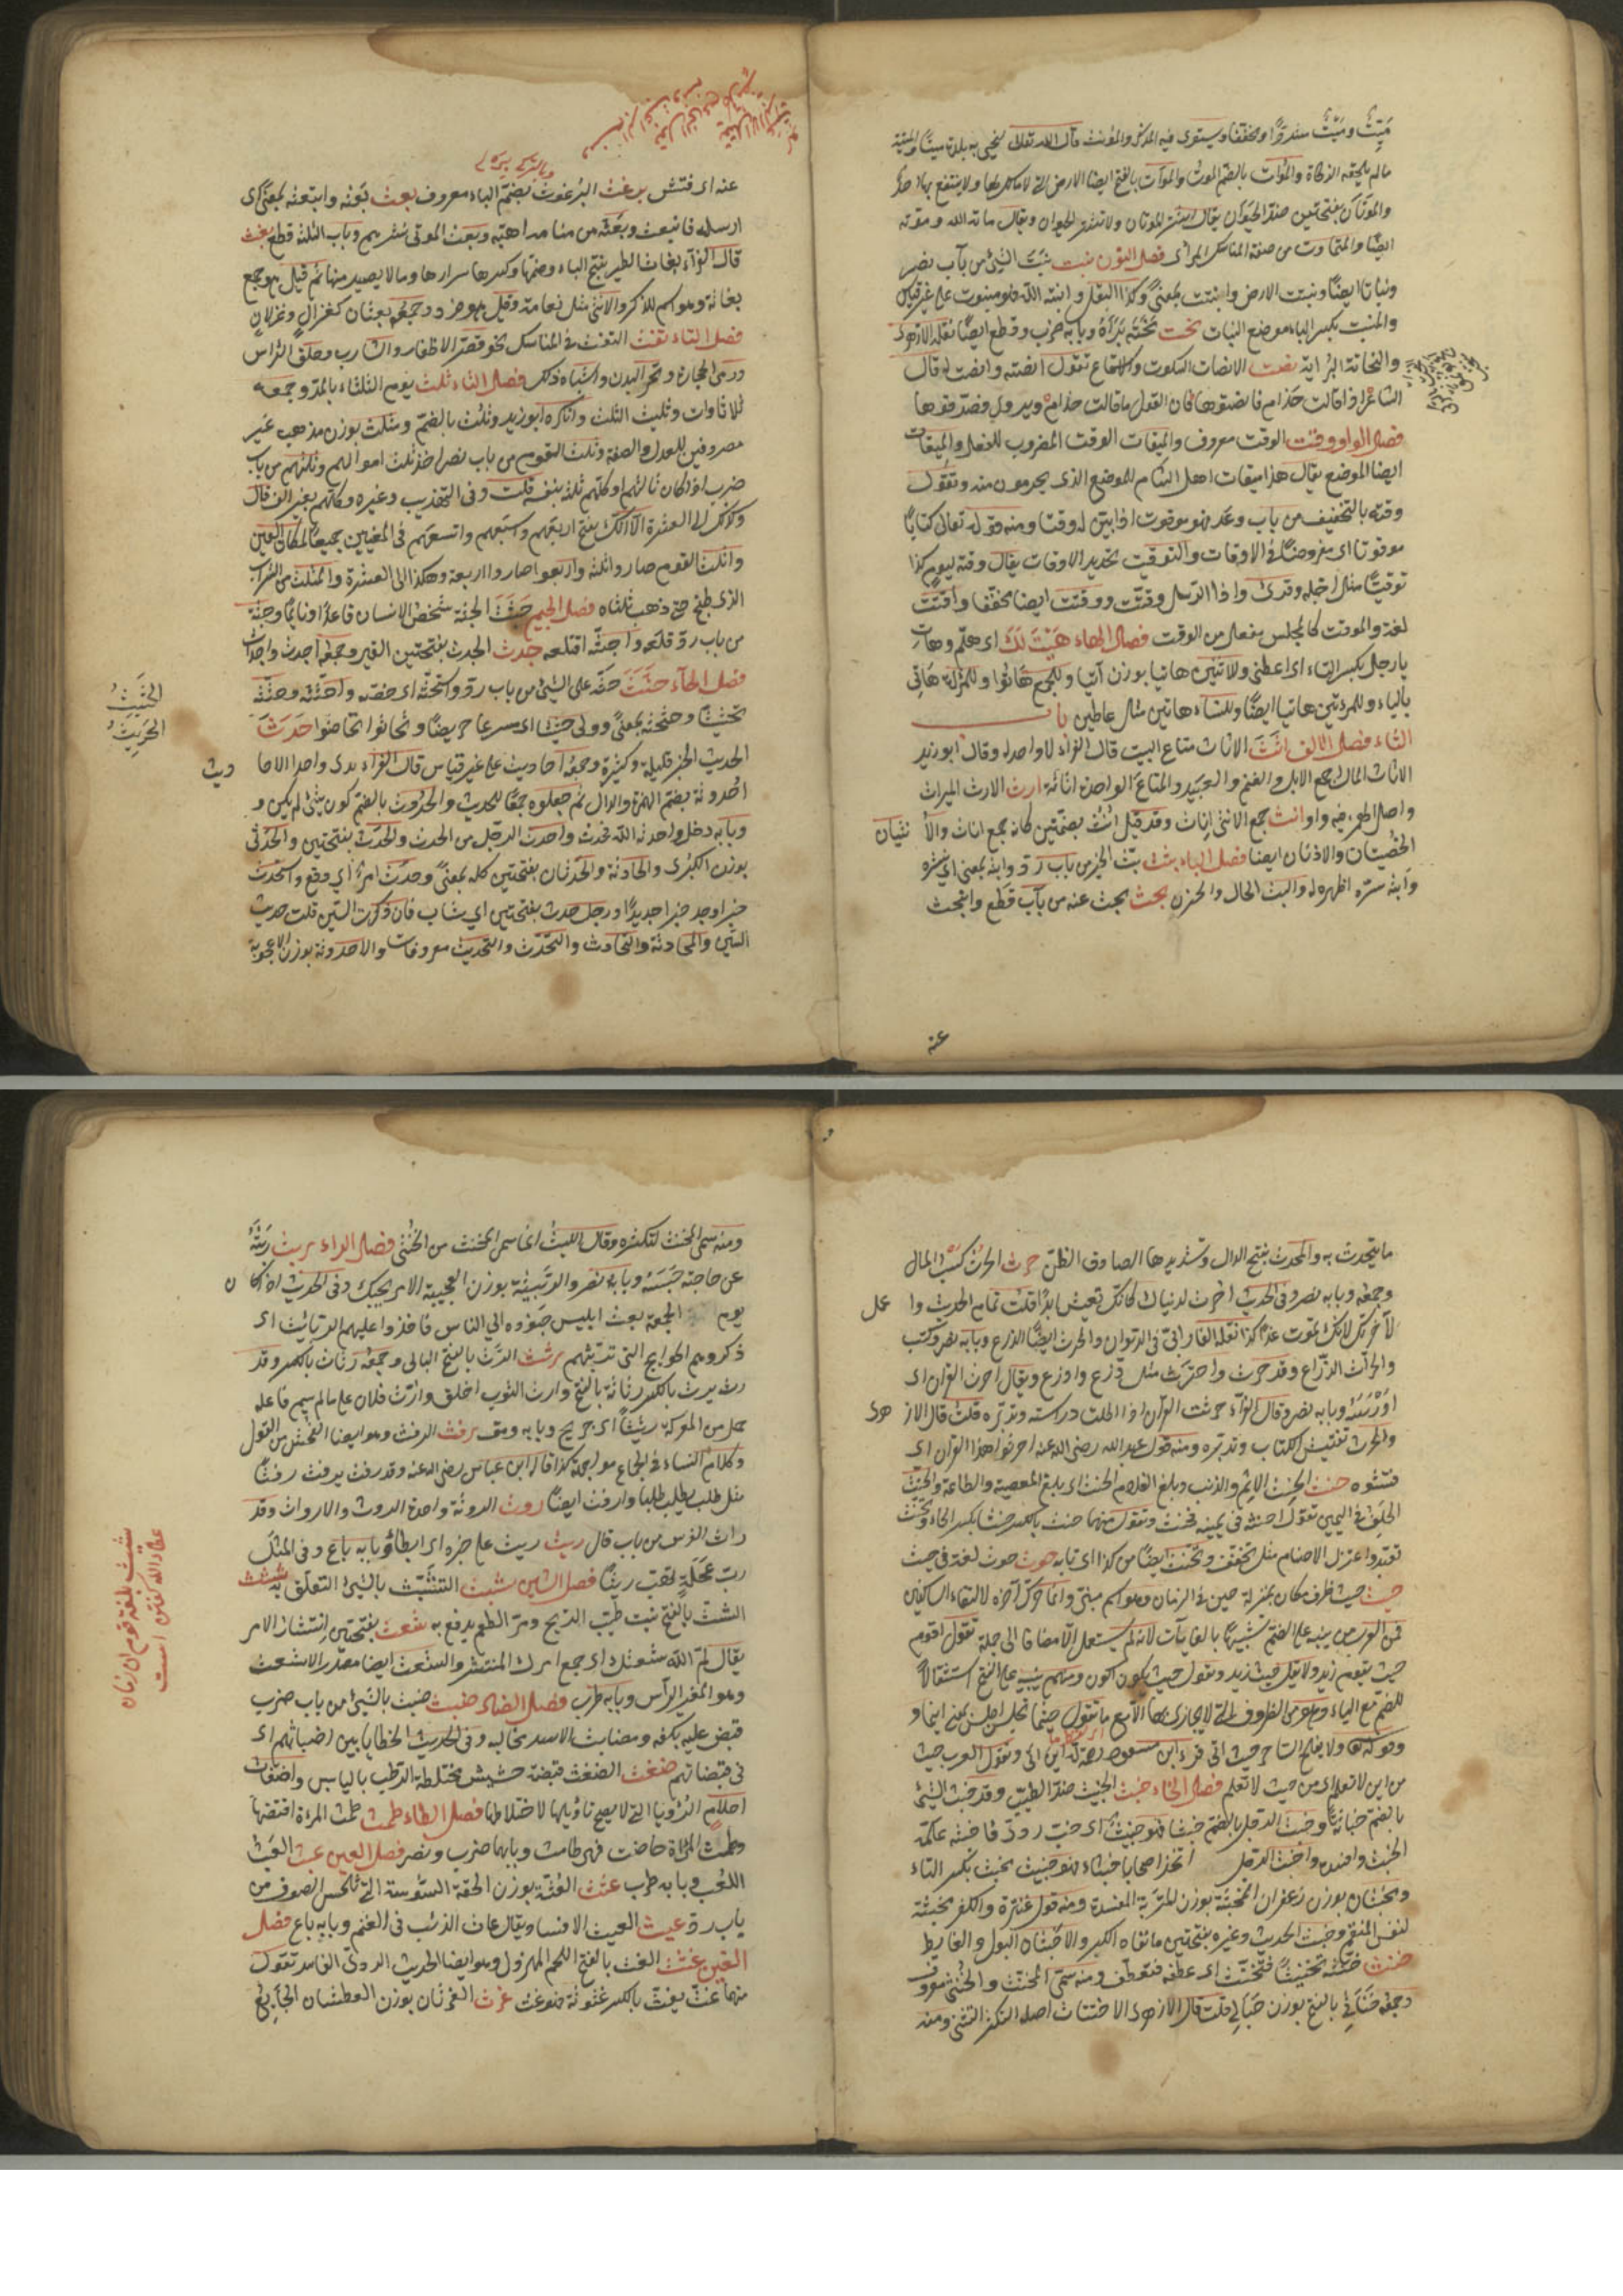 ميّتٌ وميْتٌ مشددًا ومخففا ويستوى فيه المذكر والمؤنث قال الله تعالى لنحيى به بلدة ميتا والميتة
مالم يلحقه الذكاة والموات بالضم الموت والموات بالفتح ايضا الارض التى لا مالك لها ولا ينتفع بها احد
والموتان بفتحتين ضد الحيوان يقال اشتر الموتان ولا تشتر الحيوان ويقال ماته الله وموّته
ايضًا والمتماوت من صفة الناسك المرائى فصل النون نبت نبت الشئ من باب نصر
ونباتا ايضًا ونبتت الارض وانبتت بمعنًى وكذا البقل وانبته الله فهو منبوت على غير قياس
والمنبت بكسر الباء موضع النبات نحت نحته براه وبابه ضرب وقطع ايضًا نقله الازهرى
والنحاتة البراية نصت الانصات السكوت والاستماع تقول انصته وانصت له قال
الشاعر اذا قالت حذام فانصتوها فان القول ما قالت حذام ويروى فصدقوها
فصل الواو وقت الوقت معروف والميقات الوقت المضروب للفعل والميقات
ايضا الموضع يقال هذا ميقات اهل الشام للموضع الذى يحرمون منه وتقول
وقته بالتخفيف من باب وعد فهو موقوت اذا بين له وقتا ومنه قوله تعالى كتابًا
موقوتا اى مفروضًا فى الاوقات والتوقيت تحديد الاوقات يقال وقته ليوم كذا
توقيتًا مثل اجله وقرئ واذا الرسل وقّتت ووقتت ايضا مخففا واقتت
لغة والموقت كالمجلس مفعل من الوقت فصل الهاء هَيْتَ لَكَ اى هلمّ وهات
يا رجل بكسر التاء اى اعطنى وللاثنين هاتيا بوزن آتيا وللجمع هاتوا وللمرأة هاتى
بالياء وللمرأتين هاتيا ايضًا وللنساء هاتين مثال عاطين باب
الثاء فصل الالف اثث الاثاث متاع البيت قال الفراء لا واحد له وقال ابو زيد
الاثاث المال اجمع الابل والغنم والعبيد والمتاع الواحدة اثاثة ارث الارث الميراث
واصل الهمزة فيه واو انث جمع الانثى اناث وقد قيل انث بضمتين كانه جمع اناث والأنثيان
الخصيتان والاذنان ايضا فصل الباء بثث بث الخبر من باب رد وابثه بمعنى اى نشره
وابثه سره اظهره له والبث الحال والحزن بحث بحث عنه من باب قطع وابتحث
عنه
عنه اى فتش برغث البرغوث بضم الباء معروف بعث بعثه وابتعثه بمعنًى اى
ارسله فانبعث وبعثه من منامه اهبه وبعث الموتى نشرهم وباب الثلثة قطع بغث
قال الفراء بغاث الطير بفتح الباء وضمها وكسرها شرارها ومالا يصيد منها ثم قيل هو جمع
بغاثة وهو اسم للذكر والانثى مثل نعامة وقيل هو فرد وجمعه بغثان كغزال وغزلان
فصل التاء تفث التفث فى المناسك نحو قص الاظفار والشارب وحلق الراس
ورمى الجمار ونحر البدن واشباه ذلك فصل الثاء ثلث يوم الثلثاء بالمد وجمعه
ثلاثاوات وثليث الثلث وانكره ابو زيد وثلث بالضم ومثلث بوزن مذهب غير
مصروفين للعدل والصفة وثلث القوم من باب نصر اخذ ثلث اموالهم وثلثهم من باب
ضرب اذا كان ثالثهم او كملهم ثلثة بنفسه قلت وفى التهذيب وغيره وكملهم بغير الف قال
وكذلك الى العشرة الا انك تفتح اربعهم واسبعهم واتسعهم فى المعنيين جميعا لمكان العين
واثلث القوم صاروا ثلثة واربعوا صاروا اربعة وهكذا الى العشرة والمثلث من الشراب
الذى طبخ حتى ذهب ثلثاه فصل الجيم جثث الجثة شخص الانسان قاعدا او نائما وجثه
من باب رد قلعه واجتثه اقتلعه جدث الجدث بفتحتين القبر وجمعه اجدث واجداث
فصل الحاء حثث حثه على الشئ من باب رد واستحثه اى حضه واحتثه وحثثه
تحثيثا وحثحثه بمعنًى وولى حثيثا اى مسرعا حريصًا وتحاثوا تحاضوا حدث
الحديث الخبر قليله وكثيره وجمعه احاديث على غير قياس قال الفراء نرى واحد الاحاديث
احدوثة بضم الهمزة والدال ثم جعلوه جمعًا للحديث والحدوث بالضم كون شئ لم يكن
وبابه دخل واحدثه الله فحدث واحدث الرجل من الحدث والحدث بفتحتين والحدثى
بوزن الكبرى والحادثة والحدثان بفتحتين كله بمعنًى وحدث امر اى وقع واستحدث
خبرا وجد خبرا جديدًا ورجل حدث بفتحتين اى شاب فان ذكرت السن قلت حديث
السن والمحادثة والتحادث والتحدث والتحديث معروفات والاحدوثة بوزن الاعجوبة
الحثيث
الحريث
ما يتحدث به والمحدث بفتح الدال وتشديدها الصادق الظن حرث الحرث كسب المال
وجمعه وبابه نصر وفى الحديث احرث لدنياك كانك تعيش ابدًا قلت تمام الحديث واعمل
لآخرتك لانك تموت غدًا كذا نقله الفارابى فى الديوان والحرث ايضًا الزرع وبابه نصر وكتب
والحراث الزراع وقد حرث واحترث مثل زرع وازدرع ويقال احرث القرآن اى
ادرسه وبابه نصر وقال الفراء حرثت القرآن اذا اطلت دراسته وتدبره قلت قال الازهرى
والحرث تفتيش الكتاب وتدبره ومنه قول عبد الله رضى الله عنه احرثوا هذا القرآن اى
فتشوه حنث الحنث الاثم والذنب وبلغ الغلام الحنث اى بلغ المعصية والطاعة والحنث
الخلف فى اليمين تقول احنثه فى يمينه فحنث وتقول منهما حنث بالكسر حنثا بكسر الحاء وتحنث
تعبد واعتزل الاصنام مثل تحنف وتحنث ايضًا من كذا اى تاب حوث حوث لغة فى حيث
حيث حيث ظرف مكان بمنزلة حين فى الزمان وهو اسم مبنى وانما حرك آخره لالتقاء الساكنين
فمن العرب من يبنيه على الضم تشبيها بالغايات لانه لم يستعمل الا مضافا الى جملة تقول اقوم
حيث يقوم زيد ولا تقل حيث زيد وتقول حيث يكون اكون ومنهم من يبنيه على الفتح استثقالاً
للضم مع الياء وهو من الظروف التى لا يجازى بها الا مع ما تقول حيثما تجلس اجلس بمعنى اينما و
وقوله تعالى ولا يفلح الساحر حيث اتى قرأ ابن مسعود رضى الله عنه اين اتى وتقول العرب جئت
من اين لا تعلم اى من حيث لا تعلم فصل الخاء خبث الخبيث ضد الطيب وقد خبث الشئ
بالضم خباثة وخبث الرجل بالضم خبثا فهو خبيث اى خب ردى واخبثه علمه
الخبث وافسده واخبث الرجل اتخذ اصحابا خبثاء فهو خبيث مخبث بكسر الباء
ومخبثان بوزن زعفران والمخبثة بوزن المتربة المفسدة ومنه قول عنترة والكفر مخبثة
لنفس المنعم وخبث الحديد وغيره بفتحتين ما نفاه الكير والاخبثان البول والغائط
خنث خنثه تخنيثًا فتخنث اى عطفه فتعطف ومنه سمى المخنث والخنثى معروف
وجمعه خناثى بالفتح بوزن حبالى قلت قال الازهرى الاختناث اصله التكسر والتثنى ومنه
ومنه سمى المخنث لتكسره وقال الليث انما سمى المخنث من الخنثى فصل الراء ربث ربثه
عن حاجته حبسه وبابه نصر والربيثة بوزن العجيبة الامر يحبسك وفى الحديث اذا كان
يوم الجمعة بعث ابليس جنوده الى الناس فاخذوا عليهم الربائث اى
ذكروهم الحوائج التى تربثهم رثث الرث بالفتح البالى وجمعه رثاث بالكسر وقد
رث يرث بالكسر رثاثة بالفتح وارث الثوب اخلق وارتث فلان على ما لم يسم فاعله
حمل من المعركة رثيثا اى جريحًا وبه رمق رفث الرفث وهو ايضا الفحش من القول
وكلام النساء فى الجماع مواجهة كذا قال ابن عباس رضى الله عنه وقد رفث يرفث رفثا
مثل طلب يطلب طلبا وارفث ايضًا روث الروثة واحدة الروث والارواث وقد
راث الفرس من باب قال ريث ريث على خبره اى ابطأ وبابه باع وفى المثل
رب عجلة تهب ريثا فصل الشين شبث التشبث بالشئ التعلق به شثث
الشث بالفتح نبت طيب الريح ومر الطعم يدبغ به شعث بفتحتين انتشار الامر
يقال لمّ الله شعثك اى جمع امرك المنتشر والشعث ايضا مصدر الاشعث
وهو المغبر الرأس وبابه طرب فصل الضاد ضبث ضبث بالشئ من باب ضرب
قبض عليه بكفه ومضابث الاسد مخالبه وفى الحديث الخطايا بين اضباثهم اى
فى قبضاتهم ضغث الضغث قبضة حشيش مختلطة الرطب باليابس واضغاث
احلام الرؤيا التى لا يصح تاويلها لاختلاطها فصل الطاء طمث طمث المرأة افتضها
وطمثت المرأة حاضت فهى طامث وبابهما ضرب ونصر فصل العين عبث العبث
اللعب وبابه طرب عثث العثة بوزن الحقة السوسة التى تلحس الصوف من
باب رد عيث العيث الافساد يقال عاث الذئب فى الغنم وبابه باع فصل
الغين غثث الغث بالفتح اللحم المهزول وهو ايضا الحديث الردى الفاسد تقول
منهما غث يغث بالكسر غثوثة فهو غث غرث الغرثان بوزن العطشان الجائع